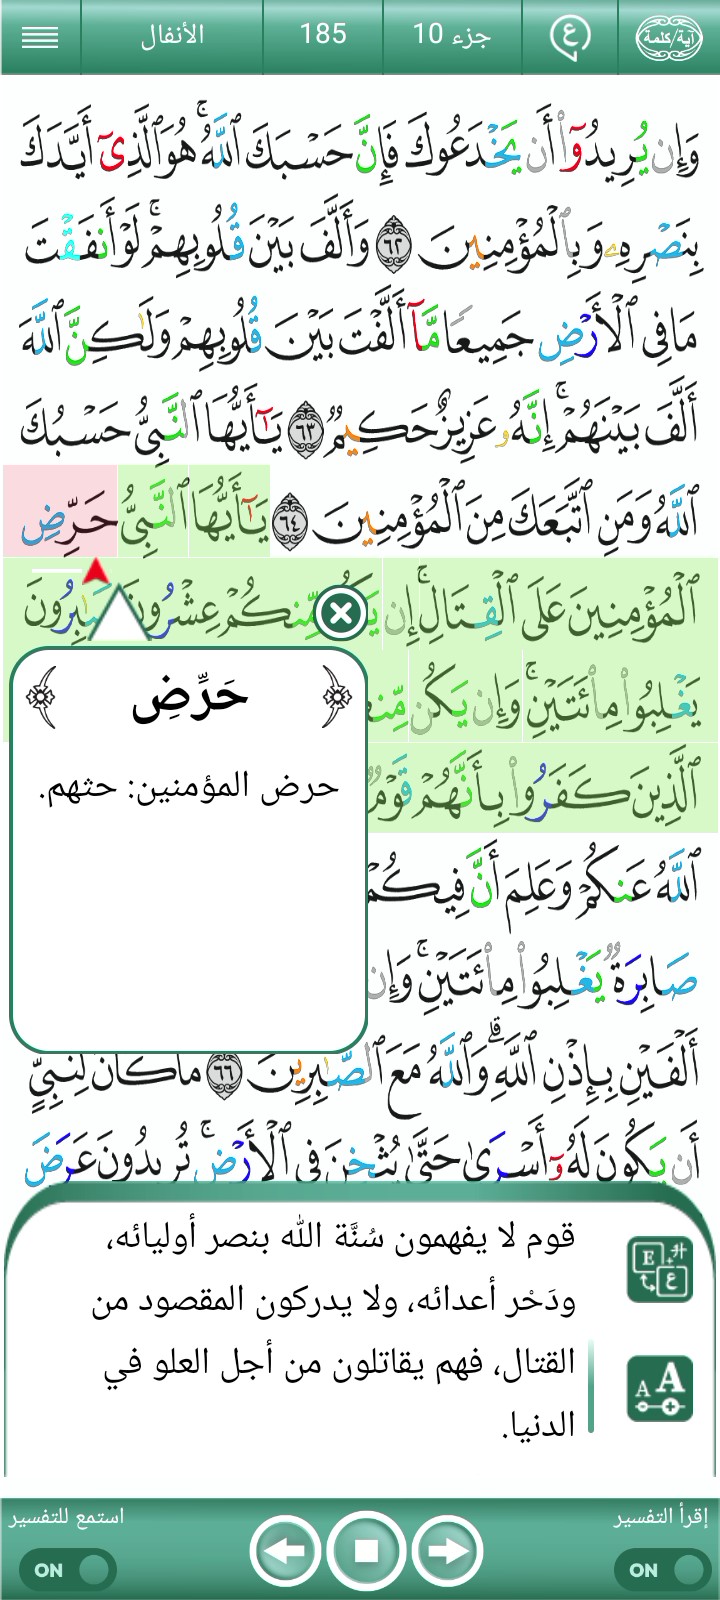 الأنفال
185
جزء 10
آية/كلمة
وَإِن يُرِيدُوٓا۟ أَن يَخْدَعُوكَ فَإِنَّ حَسْبَكَ ٱللَّهُ ۚ هُوَ ٱلَّذِىٓ أَيَّدَكَ
بِنَصْرِهِۦ وَبِٱلْمُؤْمِنِينَ ٦٢ وَأَلَّفَ بَيْنَ قُلُوبِهِمْ ۚ لَوْ أَنفَقْتَ
مَا فِى ٱلْأَرْضِ جَمِيعًا مَّآ أَلَّفْتَ بَيْنَ قُلُوبِهِمْ وَلَـٰكِنَّ ٱللَّهَ
أَلَّفَ بَيْنَهُمْ ۚ إِنَّهُۥ عَزِيزٌ حَكِيمٌ ٦٣ يَـٰٓأَيُّهَا ٱلنَّبِىُّ حَسْبُكَ
ٱللَّهُ وَمَنِ ٱتَّبَعَكَ مِنَ ٱلْمُؤْمِنِينَ ٦٤ يَـٰٓأَيُّهَا ٱلنَّبِىُّ حَرِّضِ
ٱلْمُؤْمِنِينَ عَلَى ٱلْقِتَالِ ۚ إِن مِّنكُمْ عِشْرُونَ صَـٰبِرُونَ
يَغْلِبُوا۟ مِا۟ئَتَيْنِ ۚ وَإِن يَكُن
ٱلَّذِينَ كَفَرُوا۟ بِأَنَّهُمْ قَوْمٌ
ٱللَّهُ عَنكُمْ وَعَلِمَ أَنَّ فِيكُمْ
صَابِرَةٌ يَغْلِبُوا۟ مِا۟ئَتَيْنِ ۚ وَإِن
أَلْفَيْنِ بِإِذْنِ ٱللَّهِ ۗ وَٱللَّهُ مَعَ ٱلصَّـٰبِرِينَ ٦٦ مَا كَانَ لِنَبِىٍّ
أَن يَكُونَ لَهُۥٓ أَسْرَىٰ حَتَّىٰ يُثْخِنَ فِى ٱلْأَرْضِ ۚ تُرِيدُونَ عَرَضَ
حَرِّضِ
حرض المؤمنين: حثهم.
قوم لا يفهمون سُنَّة الله بنصر أوليائه،
ودَحْر أعدائه، ولا يدركون المقصود من
القتال، فهم يقاتلون من أجل العلو في
الدنيا.
إقرأ التفسير
استمع للتفسير
ON
ON